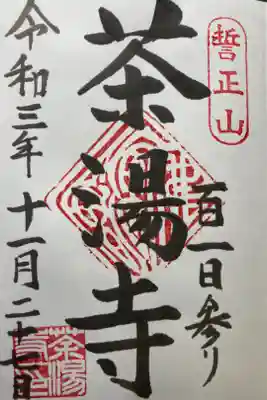 誓正山
百一日参り
茶湯寺
令和三年十一月二十七日
茶湯